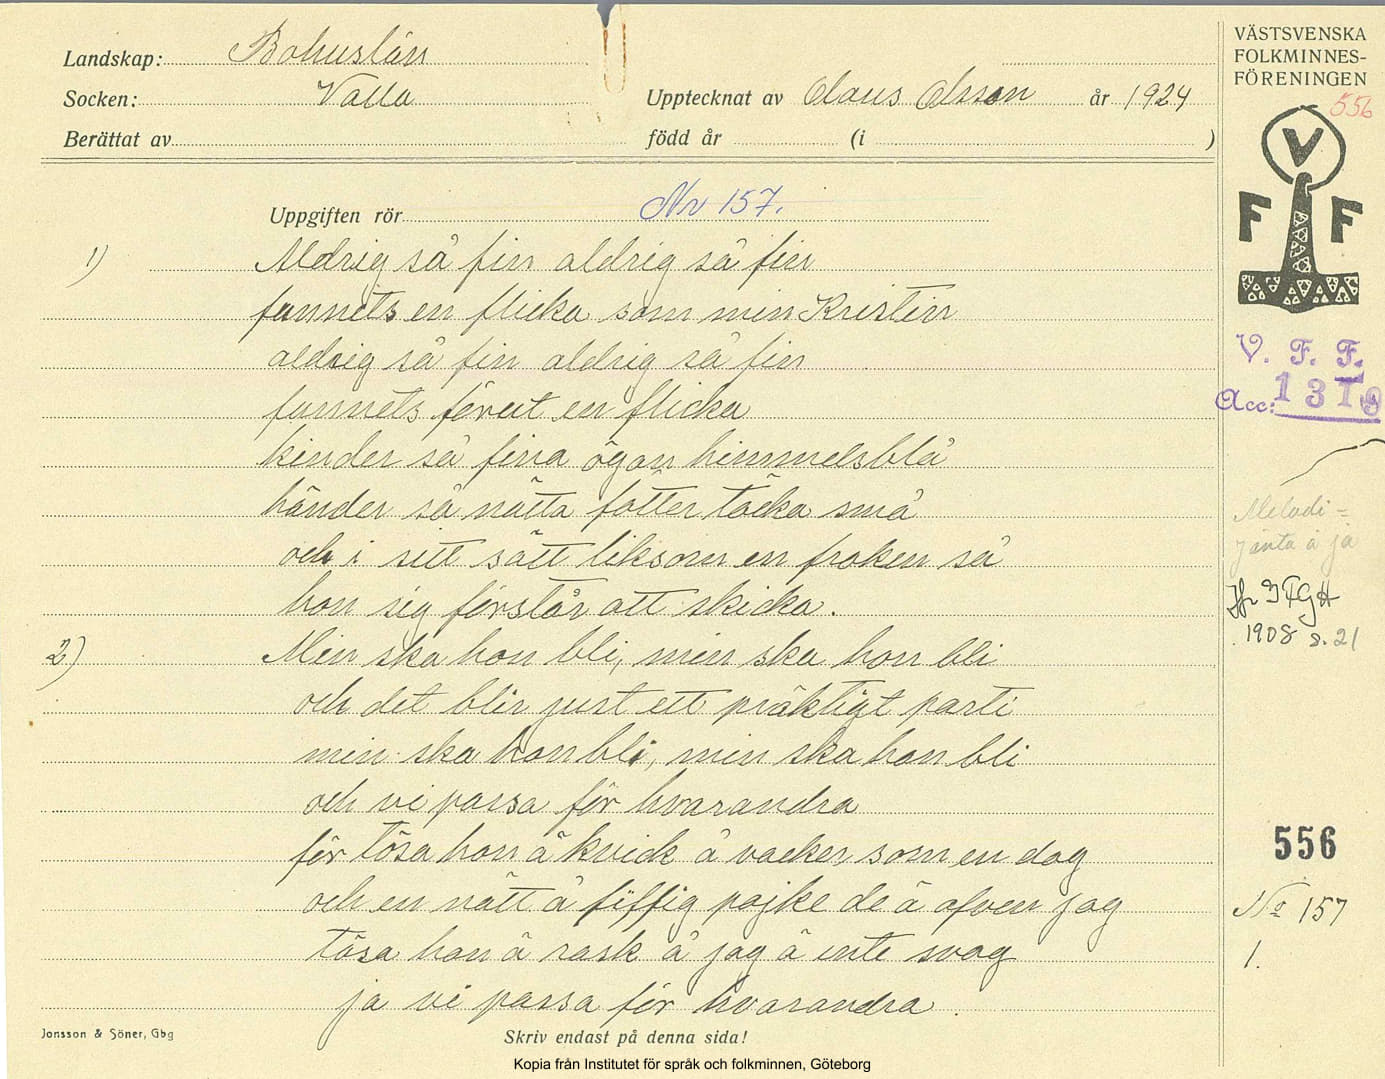 Landskap: Bohuslän
Socken: Valla
Upptecknat av Olaus Olsson år 1924
Berättat av
född år (i )
VÄSTSVENSKA
FOLKMINNES-
FÖRENINGEN
556
V
F F
V. F. F.
Acc: 1319
Uppgiften rör Nr 157.
1) Aldrig så fin aldrig så fin
funnits en flicka som min Kristin
aldrig så fin aldrig så fin
funnits förut en flicka
kinder så fina ögon himmelsblå
händer så nätta fötter täcka små
och i sitt sätt liksom en froken så
hon sig förstår att skicka.
2) Min ska hon bli, min ska hon bli
och det blir just ett präktigt parti
min ska hon bli, min ska hon bli
och vi passa för hvarandra
för tösa hon ä kvick å vacker som en dag
och en nätt å fiffig pojke de ä äfven jag
tösa hon ä rask å jag ä inte svag
ja vi passa för hvarandra.
Melodi =
Jänta å ja
Jfr
1908 s. 21
556
No 157
1.
Jonsson & Söner, Gbg
Skriv endast på denna sida!
Kopia från Institutet för språk och folkminnen, Göteborg